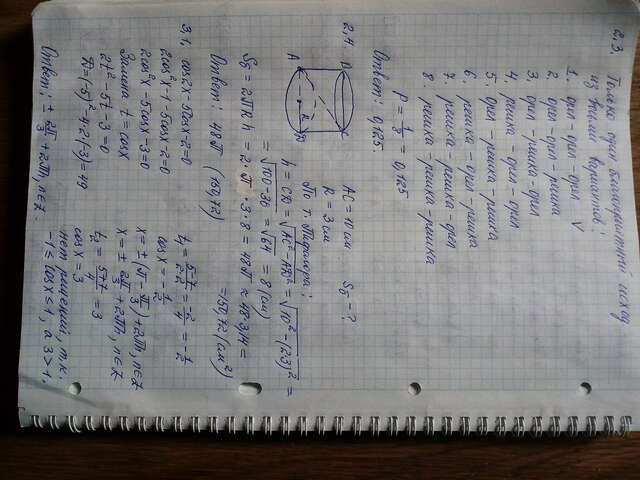 2,3. Только один благоприятный исход
из восьми вариантов:
1. орёл - орёл - орёл V
2. орёл - орёл - решка
3. орёл - решка - орёл
4. решка - орёл - орёл
5. орёл - решка - решка
6. решка - орёл - решка
7. решка - решка - орёл
8. решка - решка - решка
P = 1/8 = 0,125
Ответ: 0,125
2,4. AC = 10 см Sб - ?
R = 3 см
По т. Пифагора:
h = CD = √AC² - AD² = √10² - (2·3)² =
= √100 - 36 = √64 = 8 (см)
Sб = 2πRh = 2·π·3·8 = 48π ≈ 48·3,14 =
= 150,72 (см²)
Ответ: 48π (150,72)
3,1. cos2x - 5cosx - 2 = 0
2cos²x - 1 - 5cosx - 2 = 0
2cos²x - 5cosx - 3 = 0
Замена t = cosx
2t² - 5t - 3 = 0
D = (-5)² - 4·2·(-3) = 49
t₁ = 5-7/2·2 = -2/4 = -1/2
cosx = -1/2
x = ± (π - π/3) + 2πn, n∈Z
x = ± 2π/3 + 2πn, n∈Z
t₂ = 5+7/4 = 3
cosx = 3
нет решений, т.к.
-1 ≤ cosx ≤ 1, а 3 > 1.
Ответ: ± 2π/3 + 2πn, n∈Z.